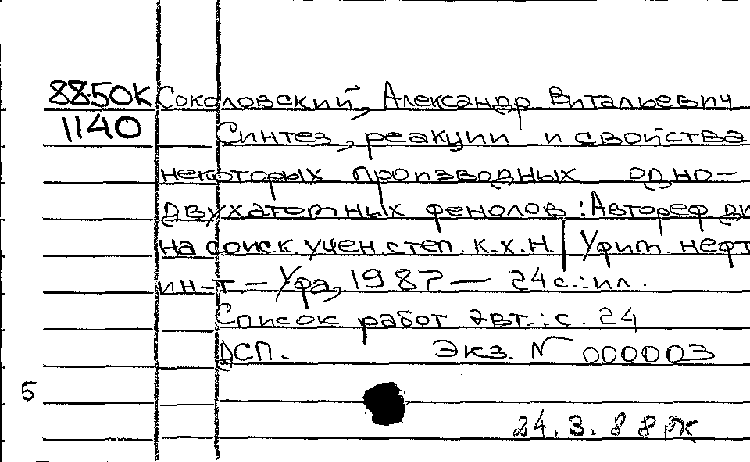 8850К Соколовский, Александр Витальевич
1140 Синтез, реакции и свойства
некоторых производных одно-
двухатомных фенолов : Автореф ди
на соиск. учен. степ. к.х.н. / Уфим. нефт
ин-т – Уфа, 1987 — 24 с.: ил.
Список работ авт.: с. 24
ДСП. Экз. N 000003
5
24.3.88